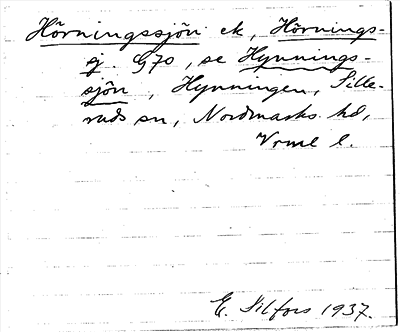 Hörningssjön ek, Hörnings-
sj. G70, se Hynnings-
sjön, Hynningen, Sille-
ruds sn, Nordmarks hd,
Vrml l.
E. Silfors 1937.